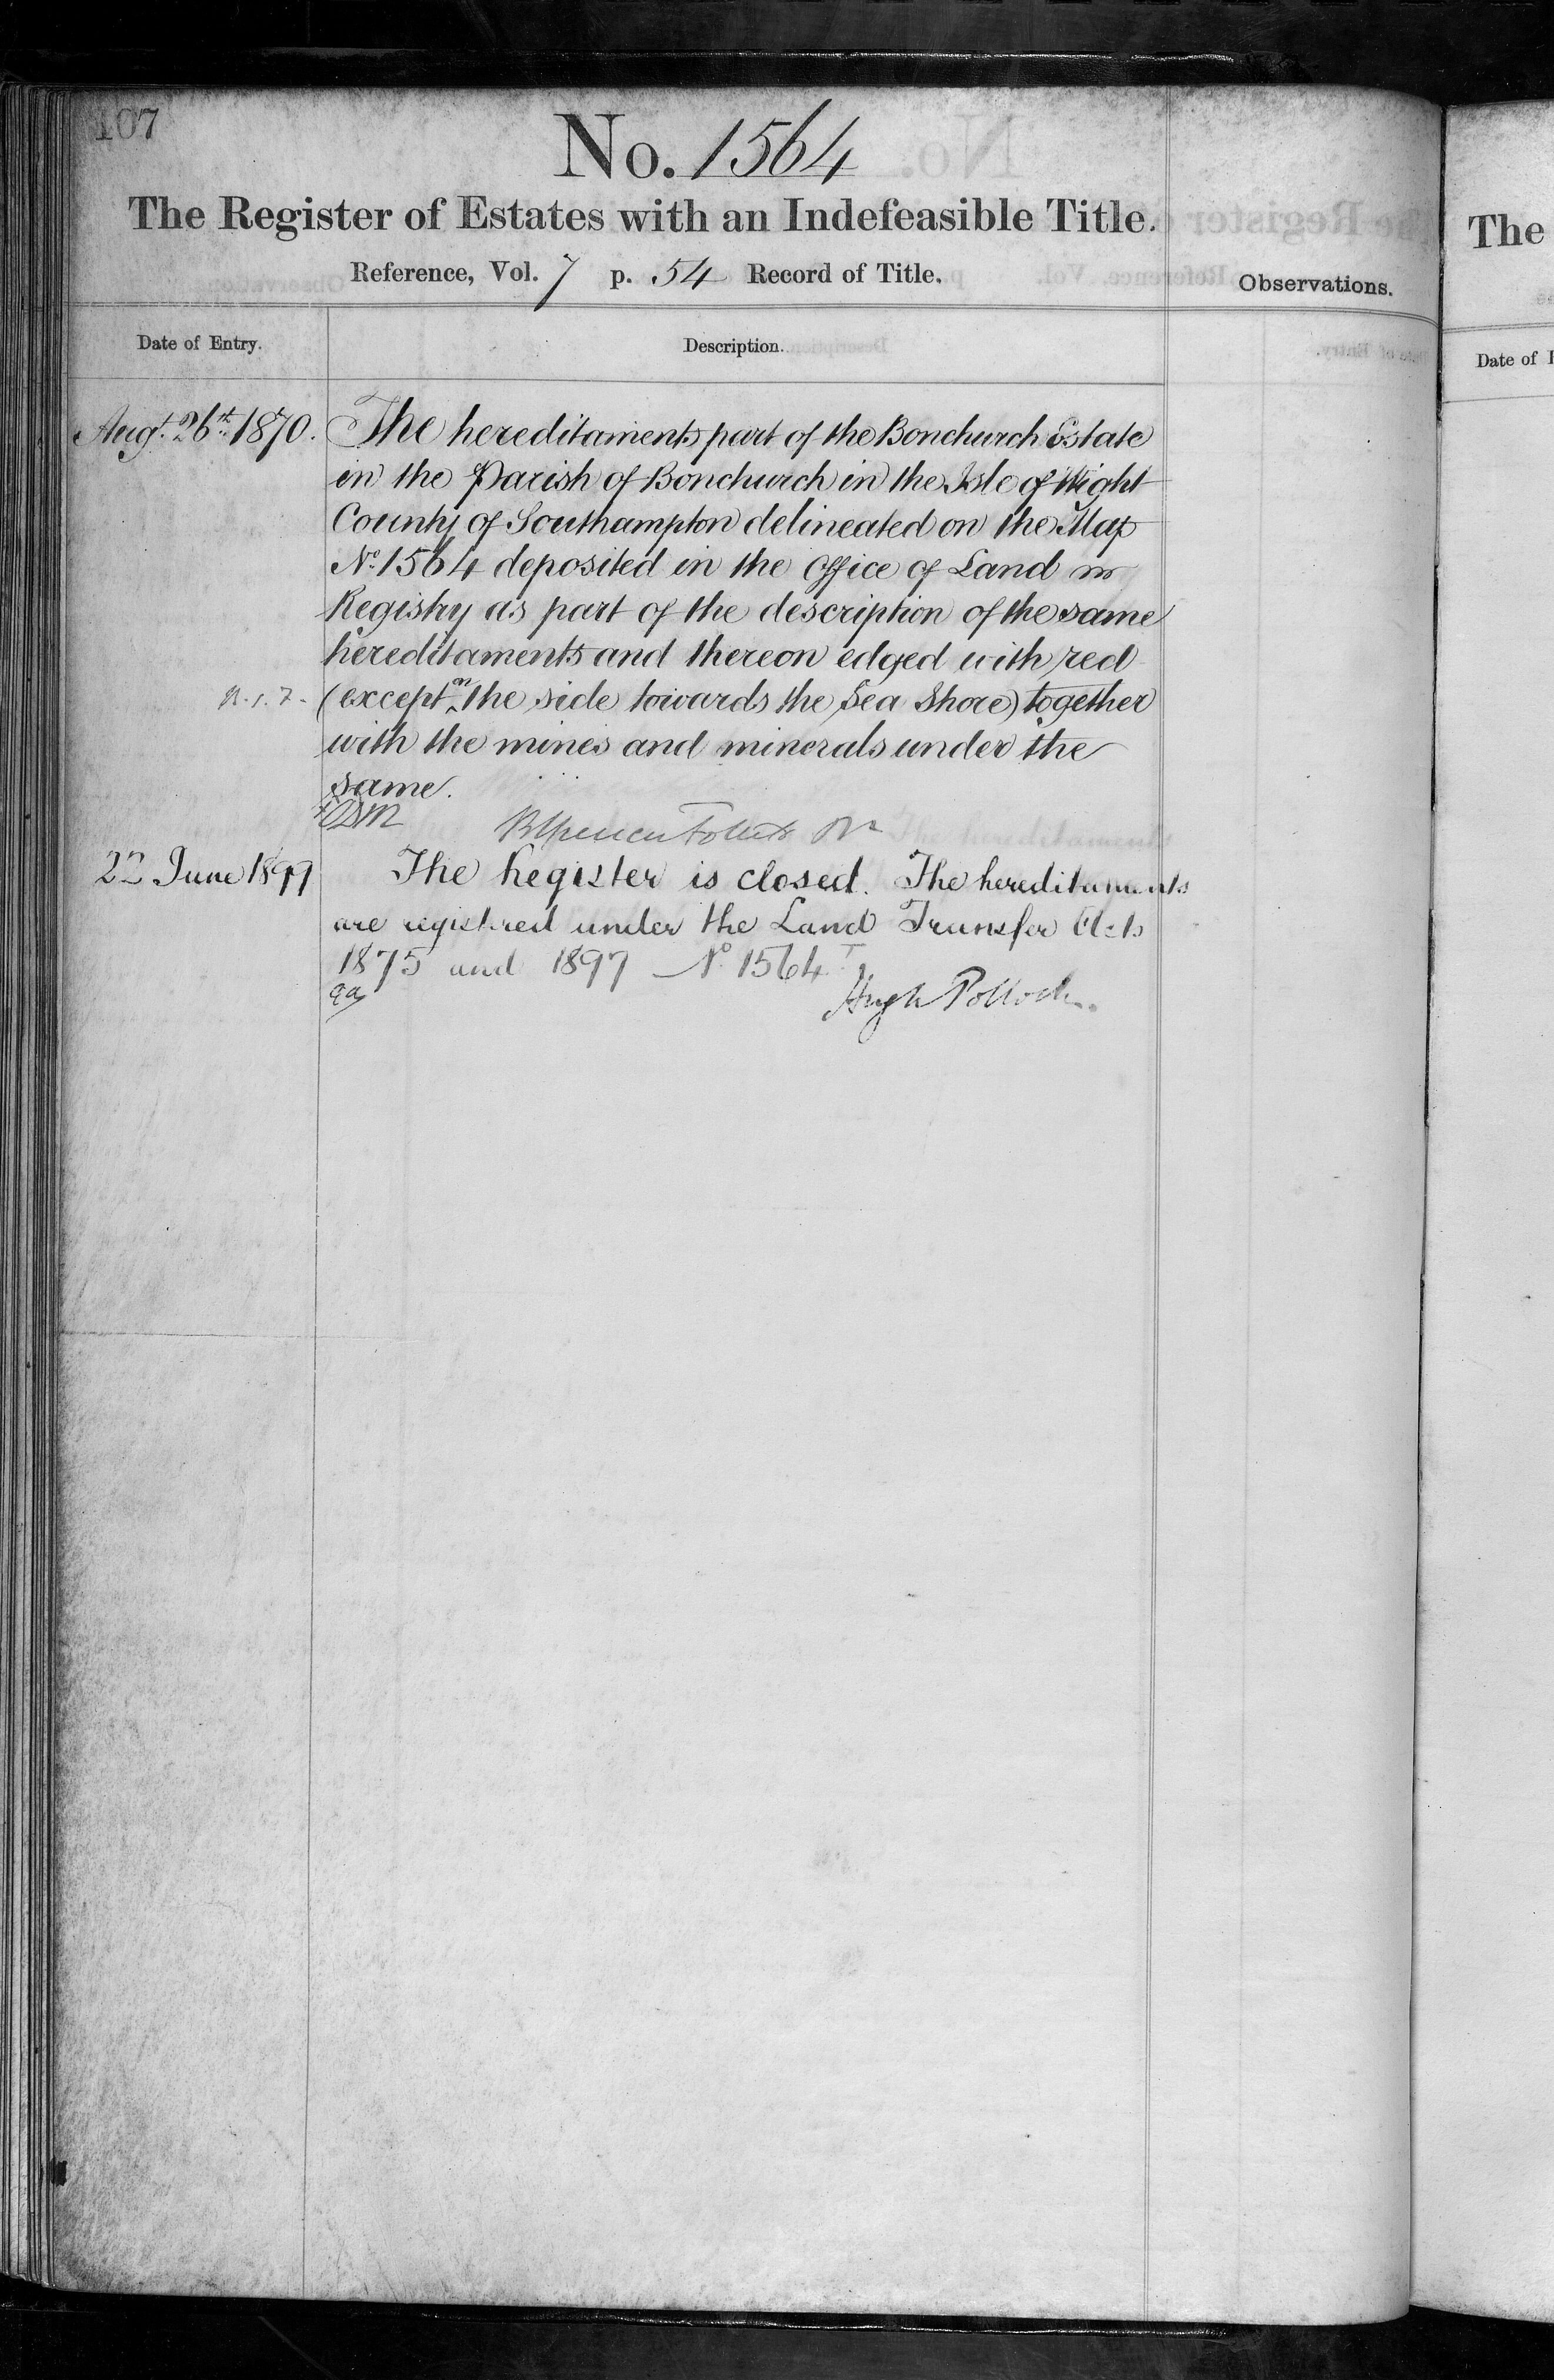 107
No. 1564
The Register of Estates with an Indefeasible Title.
Reference, Vol. 7 p. 54 Record of Title.
Observations.
Date of Entry.
Description.
Augt. 26th 1870.
The hereditaments part of the Bonchurch Estate
in the Parish of Bonchurch in the Isle of Wight
County of Southampton delineated on the Map
No. 1564 deposited in the Office of Land
Registry as part of the description of the same
hereditaments and thereon edged with red
(except on the side towards the Sea Shore) together
with the mines and minerals under the
same.
22 June 1899
The Register is closed. The hereditaments
are registered under the Land Transfer Acts
1875 and 1897 No 1564
Hugh Pollock.
The
Date of